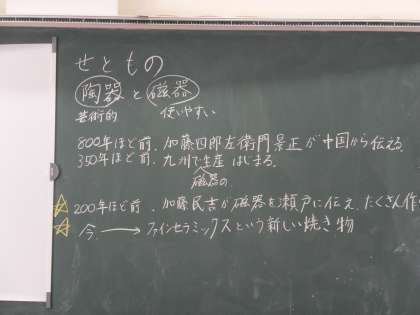 せともの
陶器と磁器
芸術的 使いやすい
800年ほど前、加藤四郎左衛門景正が中国から伝える
350年ほど前、九州で生産はじまる。
磁器の
☆200年ほど前、加藤民吉が磁器を瀬戸に伝え、たくさん作
☆今 → ファインセラミックスという新しい焼き物